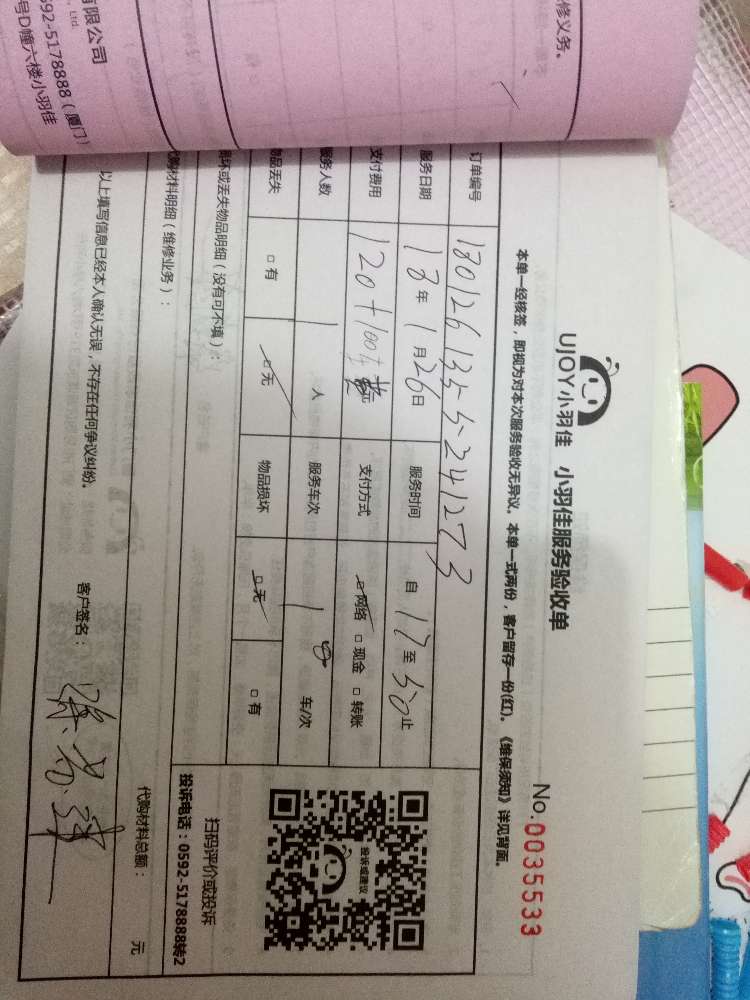 修义务。
有限公司
, Ltd
0592-5178888（厦门）
号D幢六楼小羽佳
UJOY小羽佳 小羽佳服务验收单
No.0035533
本单一经核签，即视为对本次服务验收无异议。本单一式两份，客户留存一份(红)。《维保须知》详见背面。
订单编号 1801261355241273
服务日期 18年1月26日 服务时间 自 17 至 50 止
支付费用 120+100 元 支付方式 □网络 □现金 □转账
服务人数 1 人 服务车次 1 车/次
物品丢失 □有 □无 物品损坏 □无 □有
损坏或丢失物品明细（没有可不填）：
代购材料明细（维修业务）：
代购材料总额： 元
投诉或建议
扫码评价或投诉
投诉电话：0592-5178888转2
以上填写信息已经本人确认无误，不存在任何争议纠纷。
客户签名：